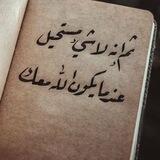 ثم إنه لا شيء مستحيل
عندما يكون الله معك